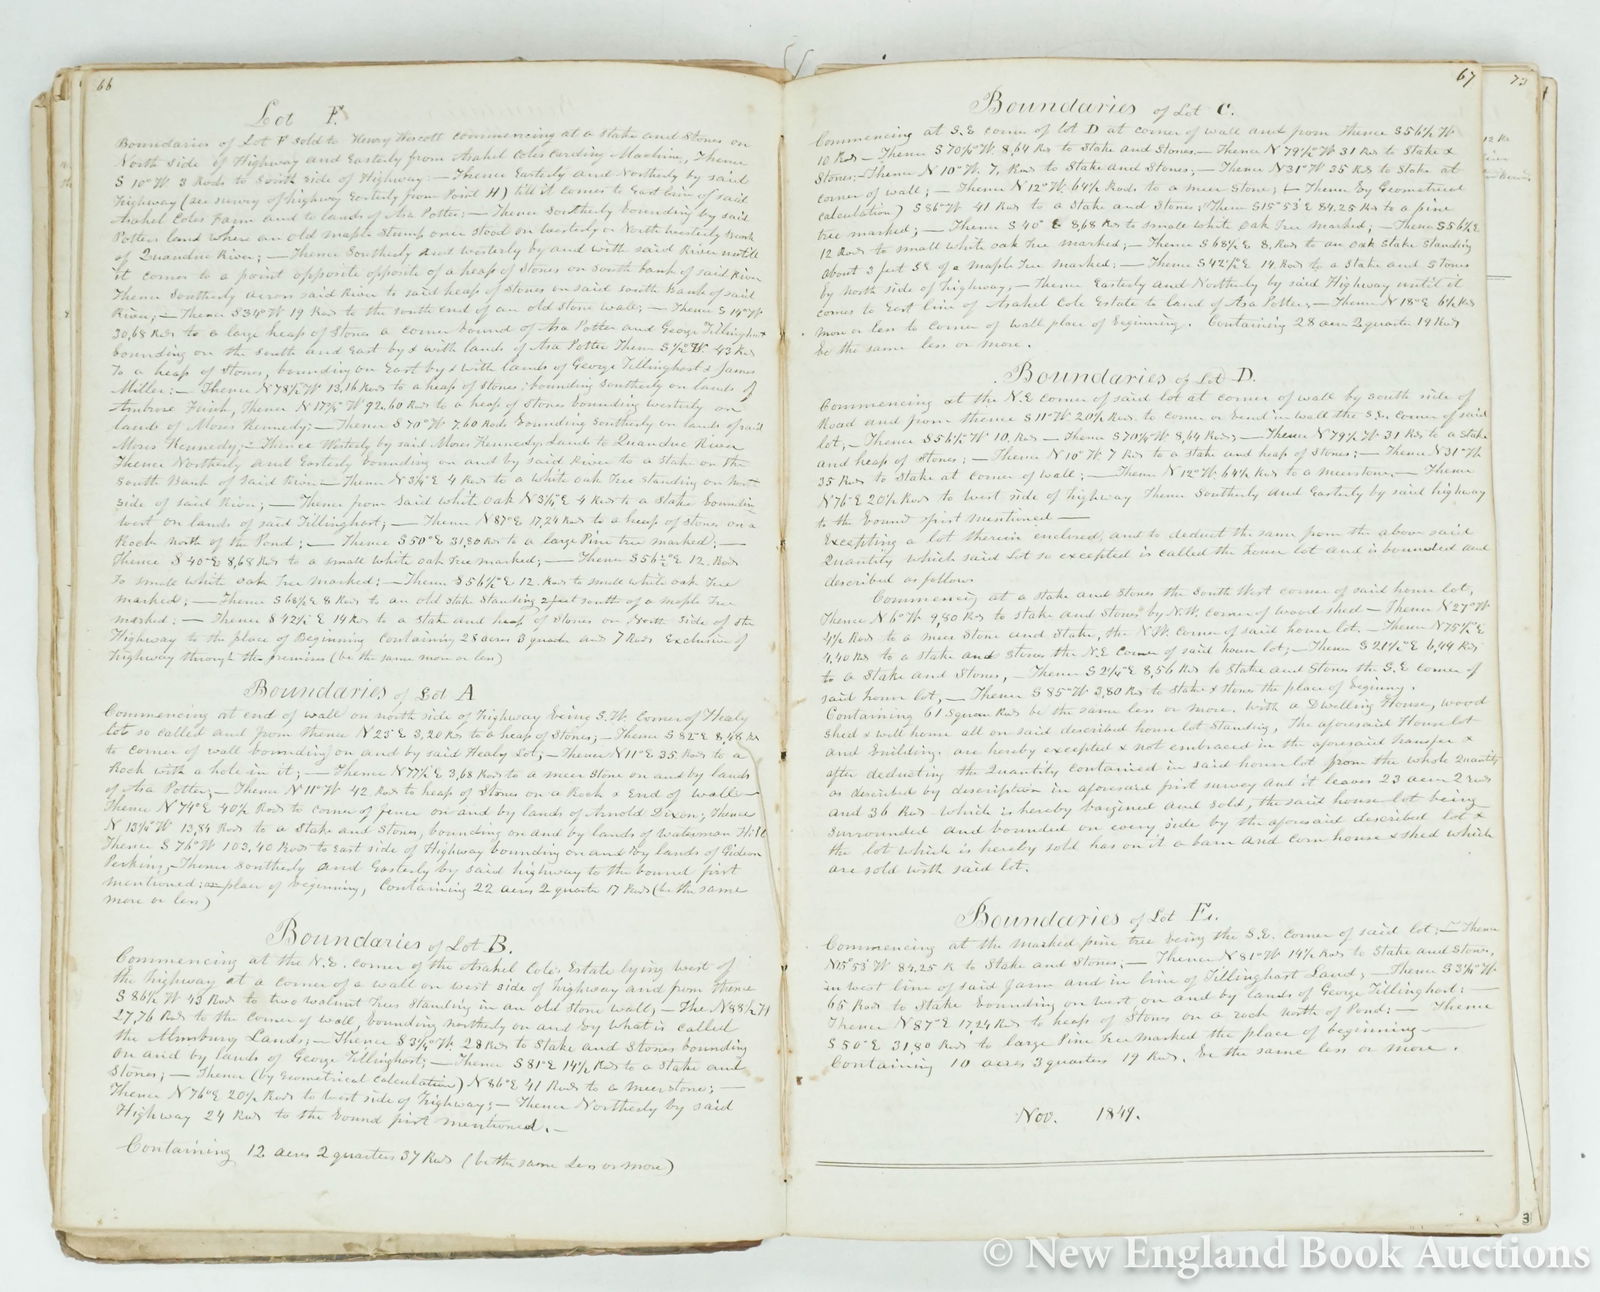 66
Lot F.
Boundaries of Lot F sold to Henry Wescott Commencing at a stake and Stones on
North side of Highway and Easterly from Asahel Coles Carding Machine, Thence
S 10° W 3 Rods to South side of Highway — Thence Easterly and Northerly by said
Highway (see survey of highway Easterly from Point H) till it comes to East line of said
Asahel Coles Farm and to lands of Asa Potter; — Thence Southerly bounding by said
Potters land where an old maple Stump once stood on westerly or North westerly Bank
of Quanduc River; — Thence Southerly and westerly by and with said River untill
it comes to a point opposite opposite of a heap of Stones on South bank of said River
Thence Southerly across said River to said heap of Stones on said South Bank of said
River, — Thence S 31¼° W 19 Rods to the south end of an old Stone wall; — Thence S 14° W
30,68 Rods to a large heap of Stones a corner bound of Asa Potter and George Tillinghast
bounding on the South and East by & with lands of Asa Potter Thence S ½° W. 43 Rods
To a heap of Stones, bounding on East by & with lands of George Tillinghast & James
Miller: — Thence N 78½° W 13,16 Rods to a heap of Stones; bounding Southerly on lands of
Ambrose Fiish, Thence N 17¾° W 92,60 Rods to a heap of Stones bounding westerly on
lands of Moses Kennedy; — Thence S 70° W 7,60 Rods bounding Southerly on lands of said
Moses Kennedy; — Thence Westerly by said Moses Kennedys Lands to Quanduc River
Thence Northerly and Easterly bounding on and by said River to a Stake on the
South Bank of said River — Thence N 3¼° E 4 Rods to a white Oak Tree standing on North
side of said River; — Thence from said white Oak N 3¼° E 4 Rods to a Stake bounding
west on lands of said Tillinghast; — Thence N 87° E 17,24 Rods to a heap of Stones on a
Rock north of the Pond; — Thence S 50° E 31,80 Rods to a large Pine tree marked; —
Thence S 40° E 8,68 Rods to a small white oak Tree marked; — Thence S 56½° E 12. Rods
To small white oak Tree marked; — Thence S 56½° E 12. Rods to small white oak Tree
marked; — Thence S 68½ E 8 Rods to an old Stake Standing 2 feet south of a Maple Tree
marked: — Thence S 42½° E 14 Rods to a Stake and heap of Stones on North side of the
Highway to the place of Beginning Containing 28 acres 3 quarters and 7 Rods Exclusive of
Highway through the premises (be the same more or less)
Boundaries of Lot A
Commencing at end of wall on north side of Highway being S.W. Corner of Healy
Lot so called and from Thence N 23° E 3,20 Rods to a heap of Stones; — Thence S 82° E 8,48 Rds
to Corner of wall bounding on and by said Healy Lot; — Thence N 11° E 35 Rods to a
Rock with a hole in it; — Thence N 77½° E 3,68 Rods to a meer Stone on and by lands
of Asa Potter; — Thence N 11° W 42 Rods to heap of Stones on a Rock & End of wall —
Thence N 74° E 40½ Rods to Corner of fence on and by lands of Arnold Dixon; Thence
N 13¼° W 13,84 Rods to a Stake and Stones, bounding on and by lands of Waterman Hill
Thence S 76° W 103,40 Rods to East side of Highway bounding on and by lands of Gideon
Perkins, — Thence Southerly and Easterly by said highway to the bound first
mentioned: or place of beginning, Containing 22 acres 2 quarter 17 Rods (be the same
more or less)
Boundaries of Lot B.
Commencing at the N.E. corner of the Asahel Coles Estate lying west of
the highway at a corner of a wall on west side of highway and from thence
S 86½° W 43 Rods to two walnut trees Standing in an old Stone wall; — The N 88½ W
27,76 Rods to the Corner of wall, bounding northerly on and by what is called
the Almsbury Lands; — Thence S 3¼° W 28 Rods to Stake and Stones bounding
on and by lands of George Tillinghast; — Thence S 81° E 14½ Rods to a Stake and
Stones; — Thence (by Geometrical Calculation) N 86° E 41 Rods to a meer stone; —
Thence N 76° E 20½ Rods to west side of Highway; — Thence Northerly by said
Highway 24 Rods to the bound first mentioned. —
Containing 12 acres 2 quarters 37 Rods (be the same Less or more)
67
Boundaries of Lot C.
Commencing at S.E corner of Lot D at corner of wall and from Thence S 56½ W
10 Rods — Thence S 70¼° W 8,64 Rds to Stake and Stones. — Thence N 79½° W 31 Rds to Stake &
Stones; — Thence N 10° W 7, Rods to Stake and Stones; — Thence N 31° W 35 Rds to Stake at
corner of wall; — Thence N 12° W 64½ Rods to a meer Stone; — Thence by Geometrical
calculation) S 86° W 41 Rods to a Stake and Stones; Thence S 15° 53' E 84.25 Rds to a pine
tree marked; — Thence S 40° E 8,68 Rds to small white Oak Tree marked; — Thence S 56½ E
12 Rods to small white oak Tree marked; — Thence S 68½ E 8. Rods to an Oak Stake Standing
about 3 feet S.E of a Maple Tree marked; — Thence S 42½° E 14 Rods to a Stake and Stones
by north side of highway, — Thence Easterly and Northerly by said Highway until it
comes to East line of Asahel Cole Estate to land of Asa Potter, — Thence N 18° E 6½ Rds
more or less to Corner of wall place of beginning. Containing 28 acre 2 quarter 19 Rods
be the same less or more.
Boundaries of Lot D.
Commencing at the N.E Corner of said lot at corner of wall by South side of
Road and from thence S 11° W 20½ Rods to corner or bend in wall the S.E. corner of said
lot, — Thence S 56½° W 10, Rds — Thence S 70¼° W 8,64 Rods; — Thence N 79½ W 31 Rds to a Stake
and heap of Stones; — Thence N 10° W. 7 Rds to a stake and heap of Stones; — Thence N 31° W.
35 Rds to Stake at Corner of wall; — Thence N 12° W. 64½ Rds to a meer stone — Thence
N 76° E 20½ Rods to west side of highway Thence Southerly and Easterly by said highway
to the bound first mentioned —
Excepting a lot therein enclosed, and to deduct the same from the above said
Quantity which said Lot so excepted is called the house lot and is bounded and
described as follows
Commencing at a stake and Stones the South West corner of said house lot,
Thence N 6° W 9,80 Rods to stake and Stones by N.W. corner of wood shed — Thence N 27° W
4½ Rods to a meer Stone and Stake, the N.W. Corner of said house lot. — Thence N 75½° E
4,40 Rds to a stake and Stones the N.E Corner of said house lot; — Thence S 21½° E 6,44 Rds
to a Stake and Stones, — Thence S 2¼° E 8,56 Rds to Stake and Stones the S.E Corner of
said house lot, — Thence S 85° W 3,80 Rds to Stake & Stones the place of beginning.
Containing 61 Square Rods be the same less or more. with a Dwelling House, wood
Shed & well house all on said described house lot Standing, The aforesaid House lot
and buildings are hereby excepted & not embraced in the aforesaid Transfer &
after deducting the Quantity contained in said house lot from the whole Quantity
as described by description in aforesaid first survey and it leaves 23 acres 2 Rods
and 36 Rds which is hereby bargined and Sold, the said house lot being
Surrounded and bounded on every side by the aforesaid described lot &
the lot which is hereby sold has on it a barn and corn house & shed which
are sold with said lot.
Boundaries of Lot E.
Commencing at the marked pine tree being the S.E. corner of said lot; — Thence
N 15° 53' W 84.25 R to Stake and Stones; — Thence N 81° W 14½ Rods to Stake and Stones,
in west line of said farm and in line of Tillinghast Land; — Thence S 3¼° W
65 Rods to Stake bounding on west on and by lands of George Tillinghast; —
Thence N 87° E 17,24 Rds to heap of Stones on a rock north of Pond; — Thence
S 50° E 31,80 Rods to large Pine tree marked the place of beginning —
Containing 10 acres 3 quarters 19 Rods. be the same less or more.
Nov. 1849.
73
3
© New England Book Auctions